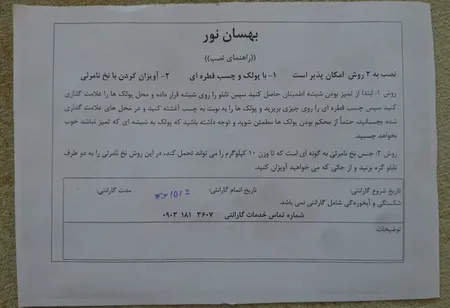 بهسان نور
((راهنمای نصب))
نصب به ۲ روش امکان پذیر است ۱- با پولک و چسب قطره ای ۲- آویزان کردن با نخ نامرئی
روش ۱: ابتدا از تمیز بودن شیشه اطمینان حاصل کنید سپس تابلو را روی شیشه قرار داده و محل پولک ها را علامت گذاری
کنید سپس چسب قطره ای را روی چیزی بریزید و پولک ها را به نوبت به چسب آغشته کنید و در محل های علامت گذاری
شده بچسبانید، حتماً از محکم بودن پولک ها مطمئن شوید و توجه داشته باشید که پولک به شیشه ای که تمیز نباشد خوب
نخواهد چسبید.
روش ۲: جنس نخ نامرئی به گونه ای است که تا وزن ۱۰ کیلوگرم را می تواند تحمل کند، در این روش نخ نامرئی را به دو طرف
تابلو گره بزنید و از جائی که می خواهید آویزان کنید.
تاریخ شروع گارانتی: تاریخ اتمام گارانتی: مدت گارانتی:
شکستگی و آبخوردگی شامل گارانتی نمی باشد.
شماره تماس خدمات گارانتی ۳۶۰۷ ۱۸۱ ۰۹۰۳
توضیحات: